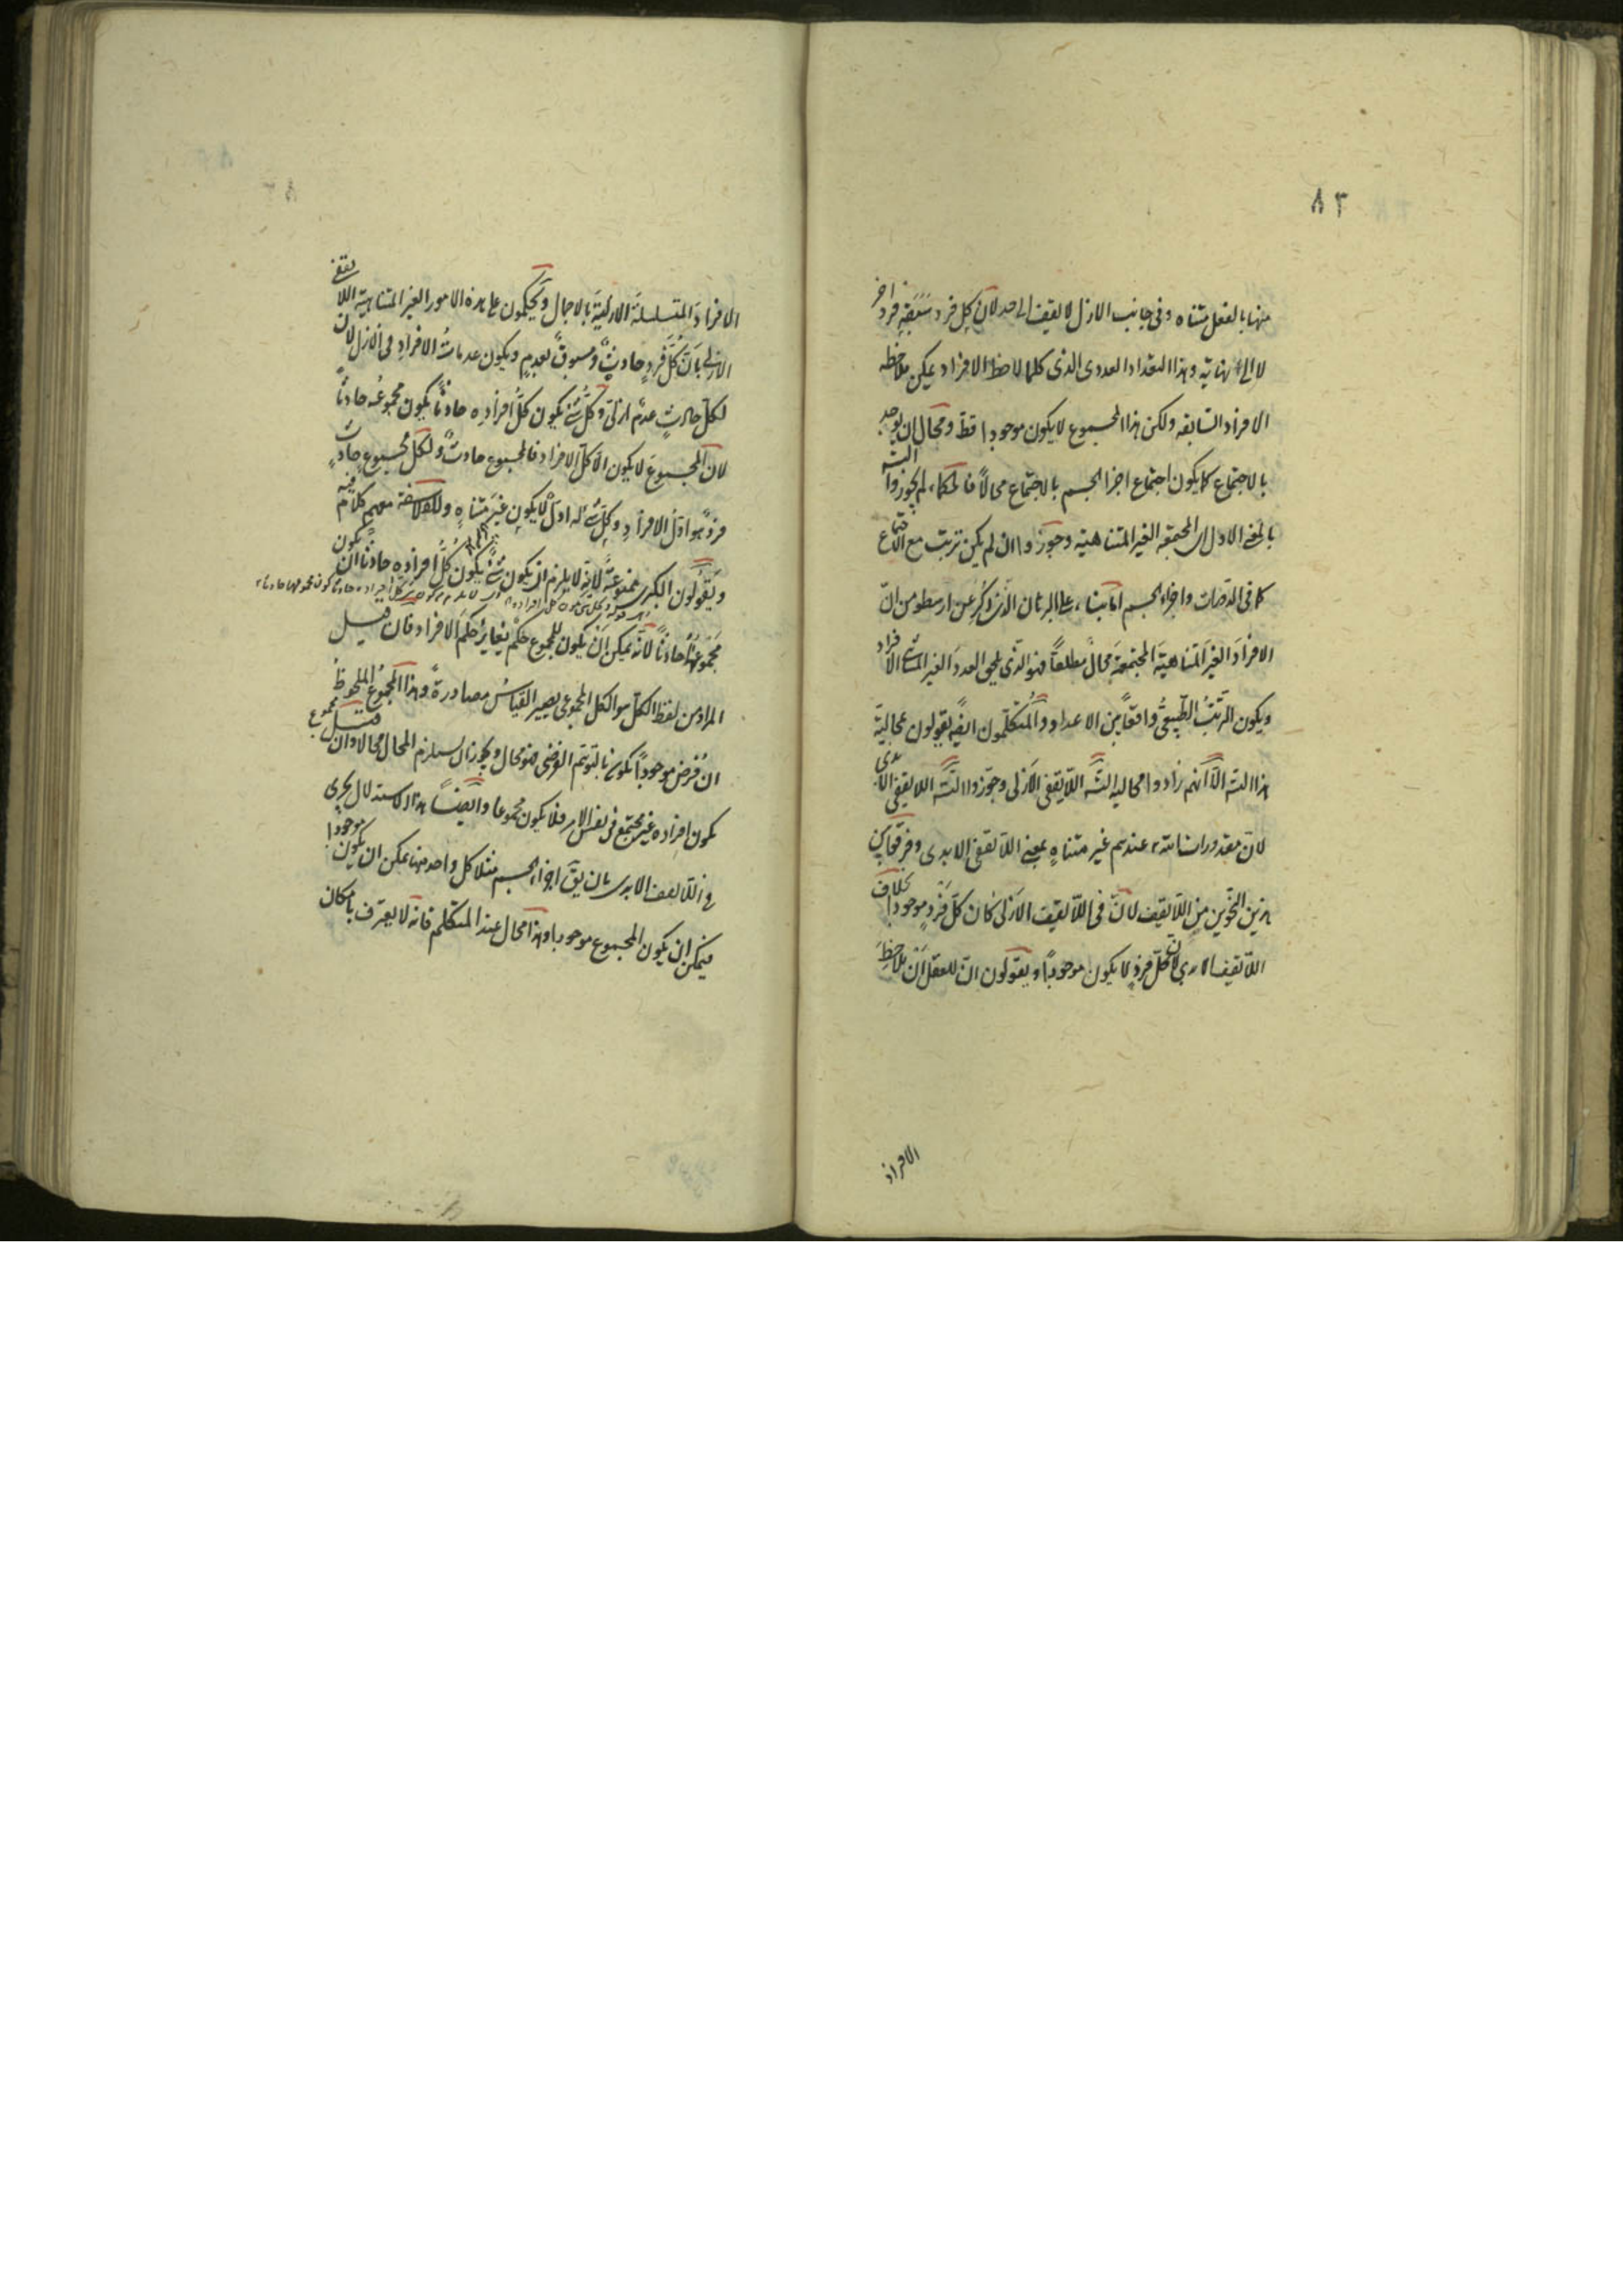 ٨٣
منها بالفعل متناه وفى جانب الازل لا يقف الى حد لان كل فرد سبقه فرد اخر
لا الى نهاية وهذا التعداد العددى الذى كلما لاحظ الافراد يمكن ملاحظه
الافراد السابقه ولكن هذا المجموع لا يكون موجودا قط ومحال ان يوجد
بالاجتماع كما يكون اجتماع اجزا الجسم بالاجتماع محالاً فالحكماء لم يجوزوا التسه
بالمعنى الاول اى المجتمعه الغير المتناهية وجوزوا ان لم يكن ترتب مع الاجتماع
كما فى الدهريات واجزاء الجسم اما بناء على البرهان الذى ذكر عن ارسطو من ان
الافرادَ الغيرَ المتناهيةِ المجتمعةِ محالٌ مطلقاً فهو الذى يلحق العددَ الغير المتناهى الافراد
ويكون الترتبُ الطبيعىُّ واقعاً بين الاعداد والمتكلمون ايضا يقولون بمحالية
هذا التسه الّا انّهم زادوا محالية التسه اللا يقفى الازلى وجوّزوا التسه اللا يقفى الابدى
لانّ مقدورات الله عندهم غير متناهٍ بمعنى اللا يقفى الابدى وفرقوا بين
هذين النحوين من اللا يقف لانّ فى اللا يقف الازلى كان كلّ فردٍ موجودا بخلاف
اللا يقف الابدى لان كلّ فردٍ لا يكون موجوداً ويقولون انّ للعقل ان يلاحظَ
الافراد
الافرادَ المتسلسلةَ الازليةَ بالاجمال ويحكمون على هذه الامور الغير المتناهية اللا يقفى
الازلى بانّ كلَّ فردٍ حادثٌ ومسبوقٌ بعدمٍ ويكون عدماتُ الافرادِ فى الازل لان
لكلّ حادثٍ عدمٌ ازلىٌّ وكلُّ شئ يكون كلُّ افرادِه حادثاً يكون مجموعُه حادثاً
لان المجموعَ لا يكون الّا كلّ الافراد فالمجموع حادثٌ ولكلّ مجموعٍ حادثٍ
فردٌ هو اوّلُ الافرادِ وكلّ شئ له اوّلٌ لا يكون غيرَ متناهٍ وللفلاسفة معهم كلام فيه
ويقولون الكبرى ممنوعةٌ لانه لا يلزم ان يكون شئٌ يكون كلُّ افرادِه حادثاً ان يكون
مجموعُها حادثاً لانّه يمكن ان يكون للمجموع حكمٌ يغايرُ حكمَ الافراد فان قيل
المراد من لفظ الكلّ هو الكل المجموعى يصير القياسُ مصادرةً وهذا المجموعُ الملحوظُ
ان فُرض موجوداً يكون بالتوهّم الفرضى فهو محال ويجوز ان يستلزم المحال محالا وان قيل مجموع
يكون افراده غير مجتمع فى نفس الامر فلا يكون مجموعا وايضاً هذا الاستدلال يجرى
فى اللا يقف الابدى بان يقَ اجزاء الجسم مثلا كل واحد منها يمكن ان يكون موجودا
فيمكن ان يكون المجموع موجودا وهذا محال عند المتكلم فانه لا يعترف بامكان